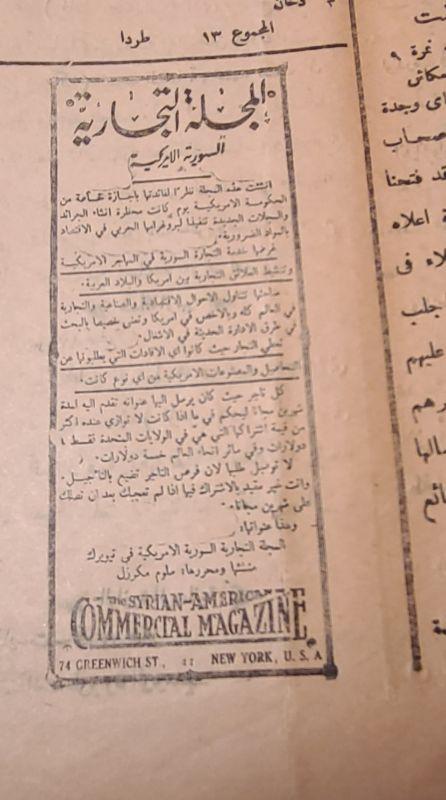 المجموع ١٣ طردا
المجلة التجارية
السورية الاميركية
انشئت هذه المجلة نظرًا لفائدتها باجازة خاصة من
الحكومة الاميركية يوم كانت محظرة انشاء الجرائد
والمجلات الجديدة تنفيذا لبروغرامها الحربي في الاقتصاد
بالمواد الضرورية.
غرضها خدمة التجارة السورية في المهاجر الاميركية
وتنشيط العلائق التجارية بين اميركا والبلاد العربية.
مباحثها تتناول الاحوال الاقتصادية والصناعية والتجارية
في العالم كله وبالاخص في اميركا وتعنى خصيصا بالبحث
في طرق الادارة الحديثة في الاشغال.
تعطي التجار حيث كانوا اي الافادات التي يطلبونها عن
المحاصيل والمصنوعات الاميركية من اي نوع كانت.
كل تاجر حيث كان يرسل الينا عنوانه تقدم اليه لمدة
شهرين مجانا ليحكم في ما اذا كانت لا توازي عنده اكثر
من قيمة اشتراكها التي هي في الولايات المتحدة فقط ٤
دولارات وفي سائر انحاء العالم خمسة دولارات.
لا توجيل طلبها لان فرص التاجر تضيع بالتأجيل.
وانت غير مقيد بالاشتراك فيها اذا لم تعجبك بعد ان تصلك
على شهرين مجانا.
وهذا عنوانها:
المجلة التجارية السورية الامريكية في نيويرك
منشئها ومحررها: سلوم مكرزل
The SYRIAN-AMERICAN
COMMERCIAL MAGAZINE
74 GREENWICH ST., :: NEW YORK, U. S. A
نمرة ٩
اى وجدة
صحاب
قد فتحنا
ة اعلاه
لاء فى
حلب
عليهم